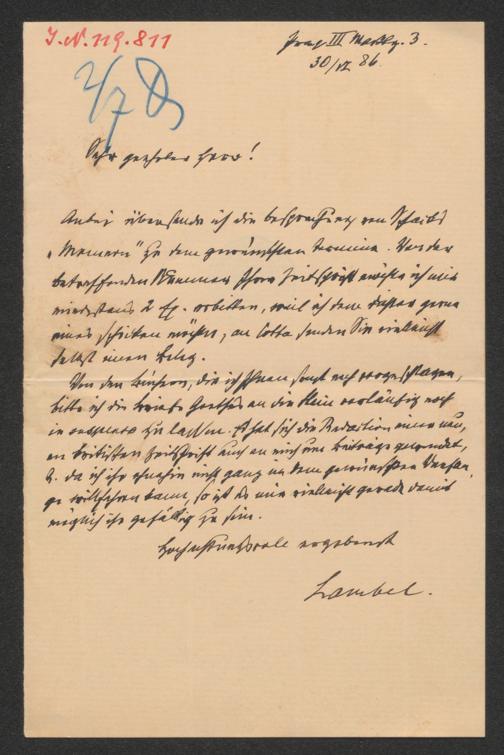 J.N. 119.811
2/7
Prag III 3.
30/VI 86.
Sehr geehrter Herr!
Anbei übersende ich die Besprechung von
"Memoiren" zu dem gewünschten Termine. Von der
betreffenden Nummer Ihrer Zeitschrift möchte ich mir
mindestens 2 Ex. erbitten, weil ich dem gerne
eines schicken möchte, an Cotta senden Sie vielleicht
selbst einen Beleg.
Von den Büchern, die ich Ihnen sonst noch vorgeschlagen,
bitte ich die Briefe Goethes an die Stein vorläufig noch
in zu lassen. Es hat sich die Redaction einer neuen
kritischen Zeitschrift auch an mich um Beiträge gewendet,
u. da ich ihr ohnehin nicht ganz in dem gewünschten
willfahren kann, so ist es mir vielleicht gerade damit
möglich ihr gefällig zu sein.
Hochachtungsvoll ergebenst
Lambel.